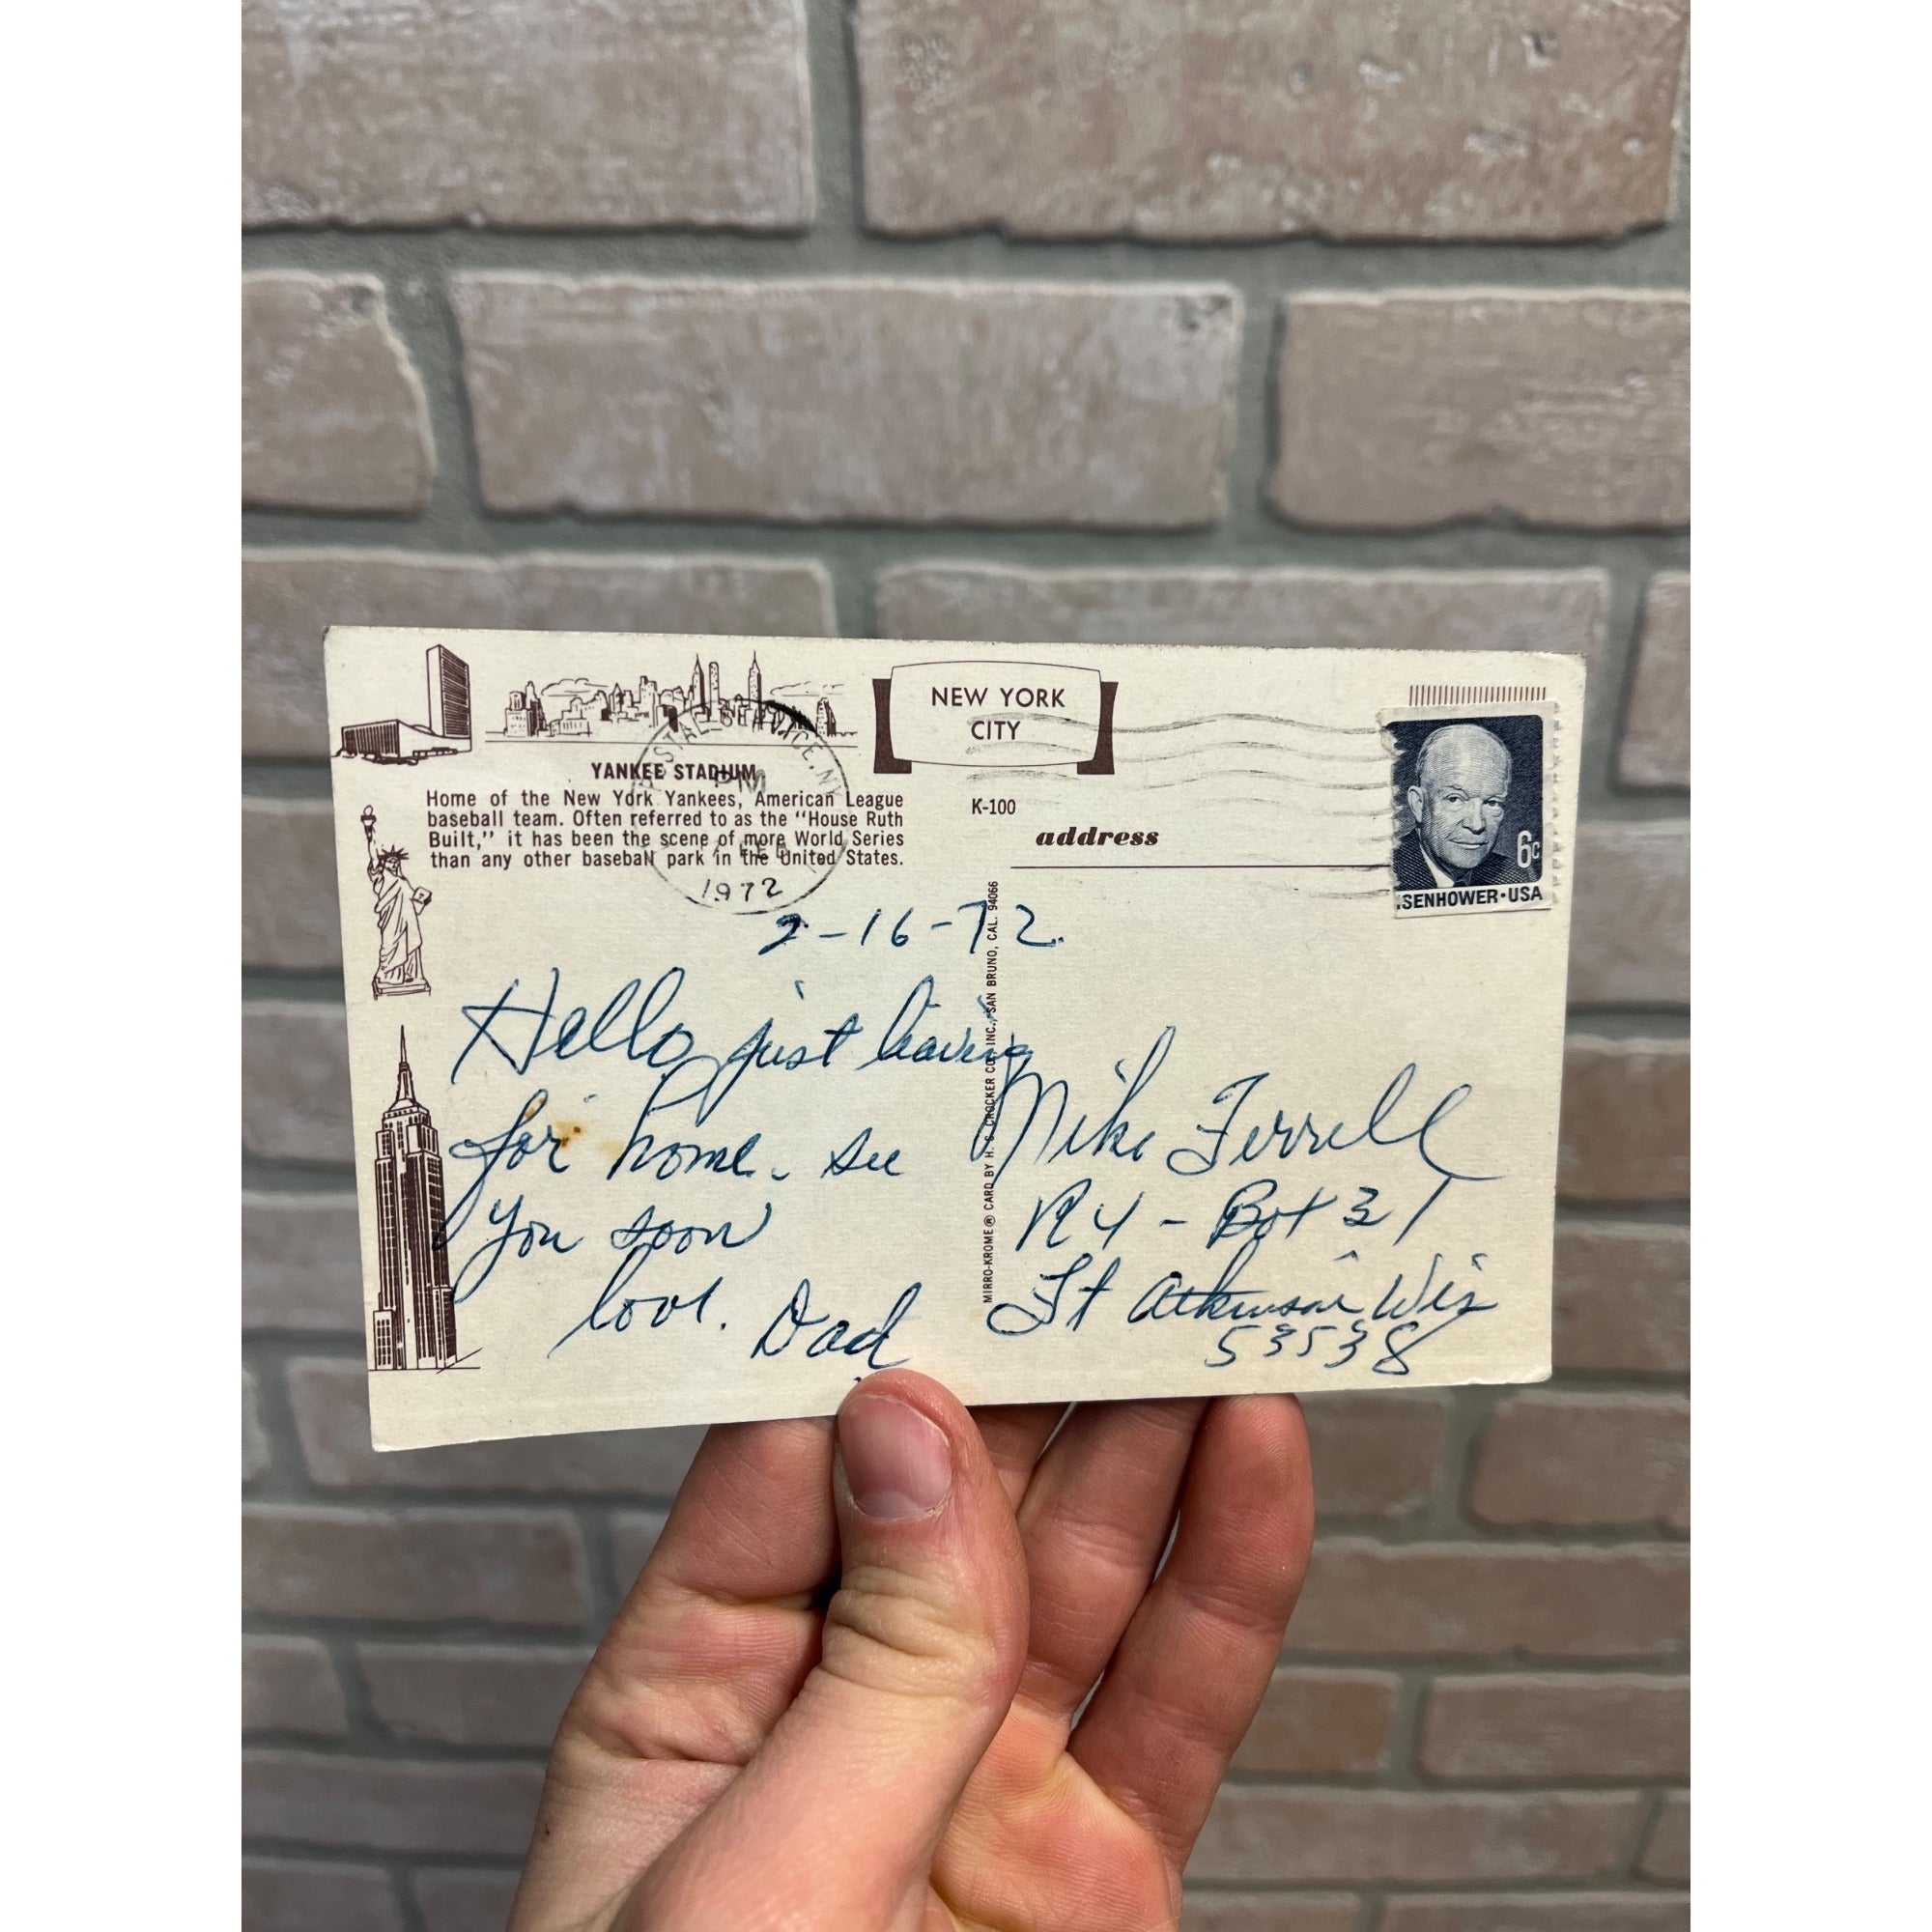 NEW YORK
CITY
YANKEE STADIUM
Home of the New York Yankees, American League
baseball team. Often referred to as the "House Ruth
Built," it has been the scene of more World Series
than any other baseball park in the United States.
K-100
address
POSTAL SERVICE, NY
PM
FEB
1972
6c
ISENHOWER·USA
2-16-72
Hello just leaving
for home. see
you soon
love. Dad
MIRRO-KROME® CARD BY H.S. CROCKER CO., INC., SAN BRUNO, CAL. 94066
Mike Ferrell
R4 - Box 31
Ft Atkinson Wis
53538